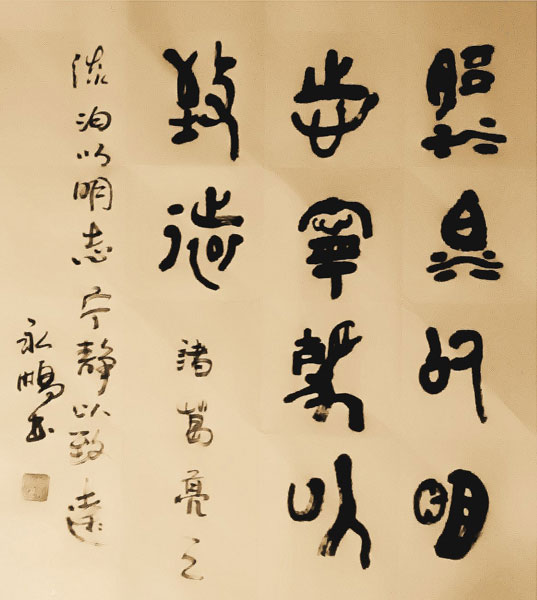 淡泊以明
志寧靜以
致遠 諸葛亮
淡泊以明志宁静以致遠
永鵬书